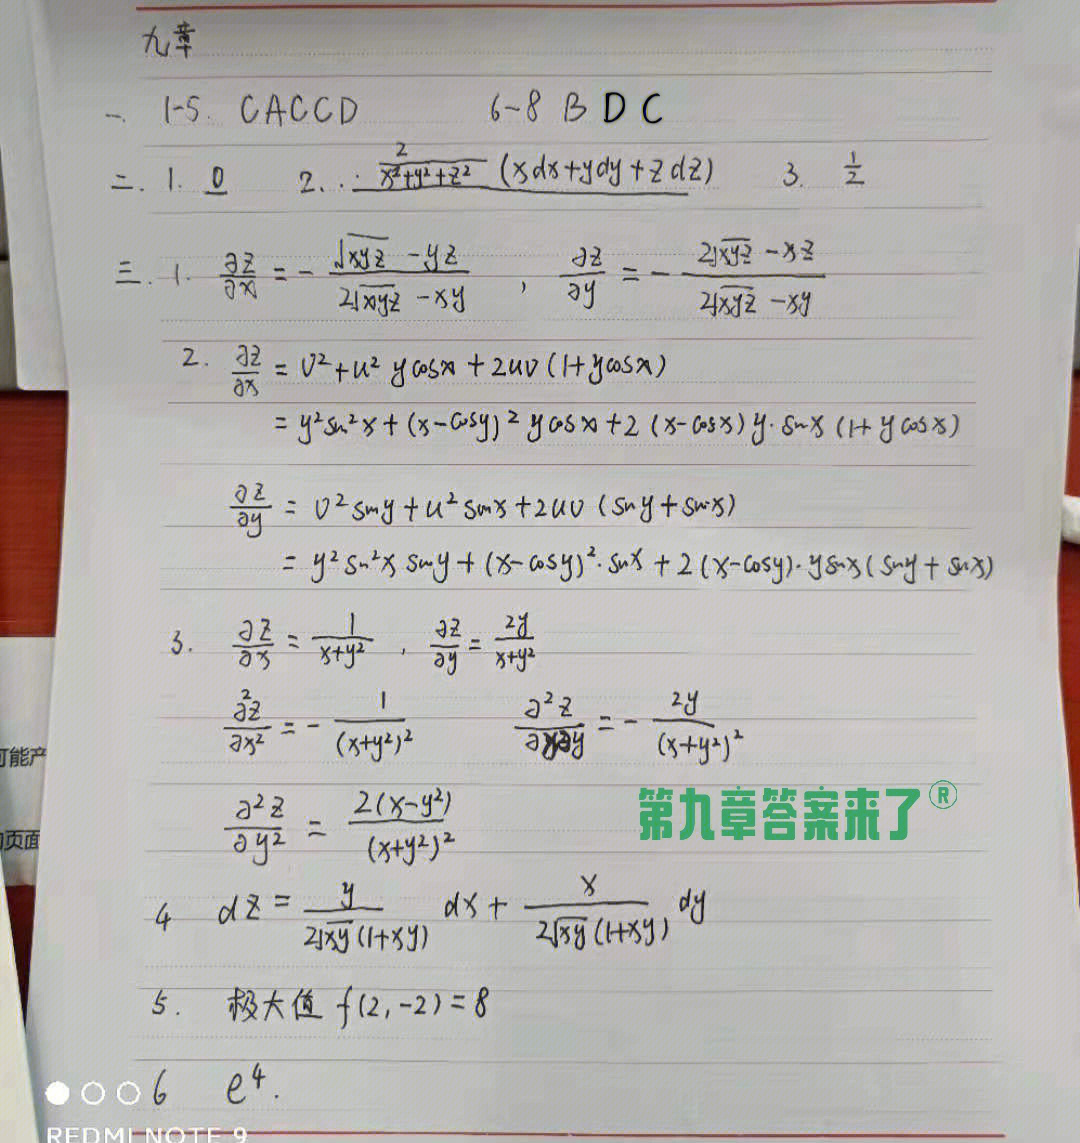 九章
一. 1-5. CACCD 6-8 B D C
二. 1. 0 2. 2/(x²+y²+z²) (xdx+ydy+zdz) 3. 1/2
三. 1. ∂z/∂x = - (√xyz - yz)/(2√xyz - xy) , ∂z/∂y = - (2√xyz - xz)/(2√xyz - xy)
2. ∂z/∂x = v²+u² ycosx + 2uv (1+ycosx)
= y²sin²x + (x-cosy)² ycosx + 2 (x-cosx) y·sinx (1+ycosx)
∂z/∂y = v² siny + u² sinx + 2uv (siny + sinx)
= y² sin²x siny + (x-cosy)²·sinx + 2 (x-cosy)·ysinx (siny + sinx)
3. ∂z/∂x = 1/(x+y²) , ∂z/∂y = 2y/(x+y²)
∂²z/∂x² = - 1/(x+y²)² ∂²z/∂x∂y = - 2y/(x+y²)²
∂²z/∂y² = 2(x-y²)/(x+y²)²
第九章答案来了®
4 dz = y/(2√xy (1+xy)) dx + x/(2√xy (1+xy)) dy
5. 极大值 f(2,-2) = 8
6 e⁴.
可能产
页面
REDMI NOTE 9